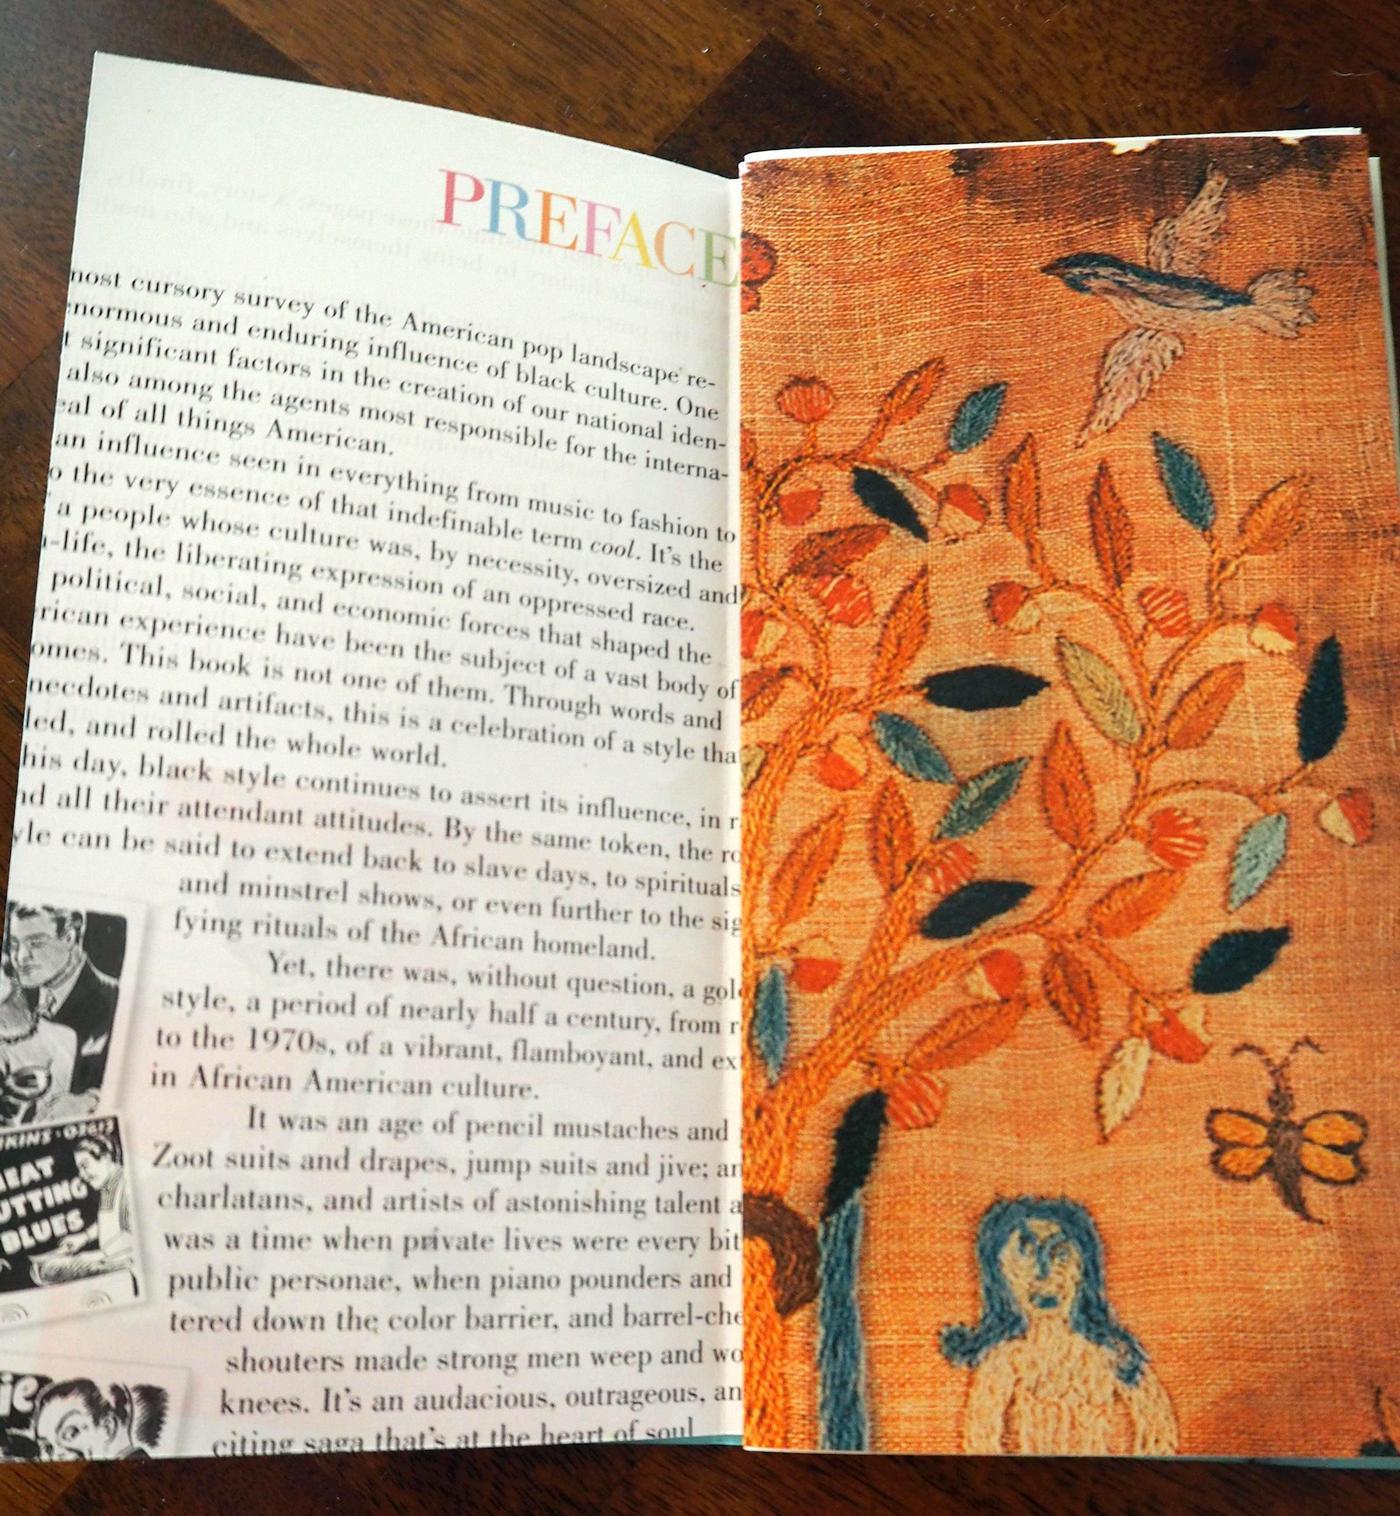 PREFACE
most cursory survey of the American pop landscape re-
enormous and enduring influence of black culture. One
t significant factors in the creation of our national iden-
also among the agents most responsible for the interna-
eal of all things American.
an influence seen in everything from music to fashion to
o the very essence of that indefinable term cool. It's the
a people whose culture was, by necessity, oversized and
-life, the liberating expression of an oppressed race.
political, social, and economic forces that shaped the
rican experience have been the subject of a vast body of
omes. This book is not one of them. Through words and
necdotes and artifacts, this is a celebration of a style tha
led, and rolled the whole world.
his day, black style continues to assert its influence, in r
nd all their attendant attitudes. By the same token, the ro
yle can be said to extend back to slave days, to spirituals
and minstrel shows, or even further to the sig
fying rituals of the African homeland.
Yet, there was, without question, a gol
style, a period of nearly half a century, from r
to the 1970s, of a vibrant, flamboyant, and ex
in African American culture.
It was an age of pencil mustaches and
Zoot suits and drapes, jump suits and jive; an
charlatans, and artists of astonishing talent a
was a time when private lives were every bit
public personae, when piano pounders and
tered down the color barrier, and barrel-che
shouters made strong men weep and wo
knees. It's an audacious, outrageous, an
citing saga that's at the heart of soul
EAT
UTTING
BLUES
ie